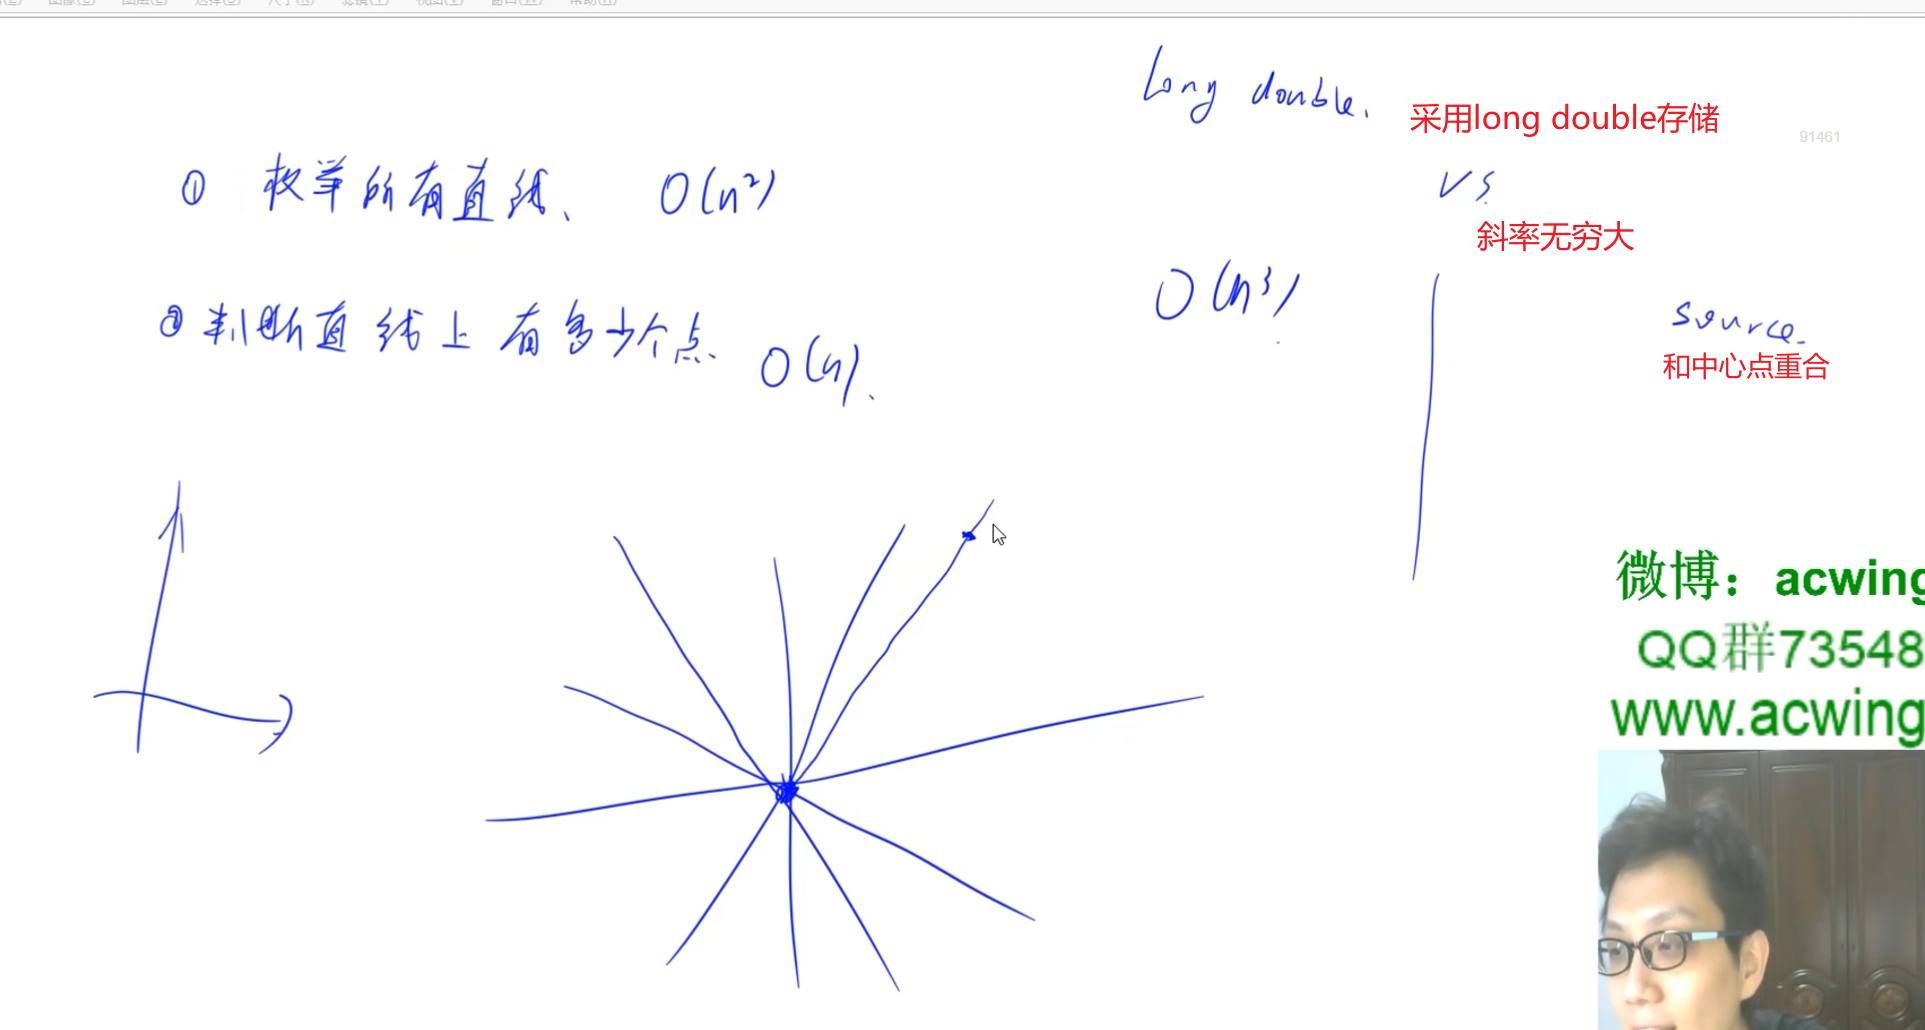 long double.
采用long double存储
91461
① 枚举所有直线、 O(n²)
vs.
斜率无穷大
O(n³)
② 判断直线上有多少个点、 O(n).
source.
和中心点重合
微博：acwing
QQ群73548
www.acwing